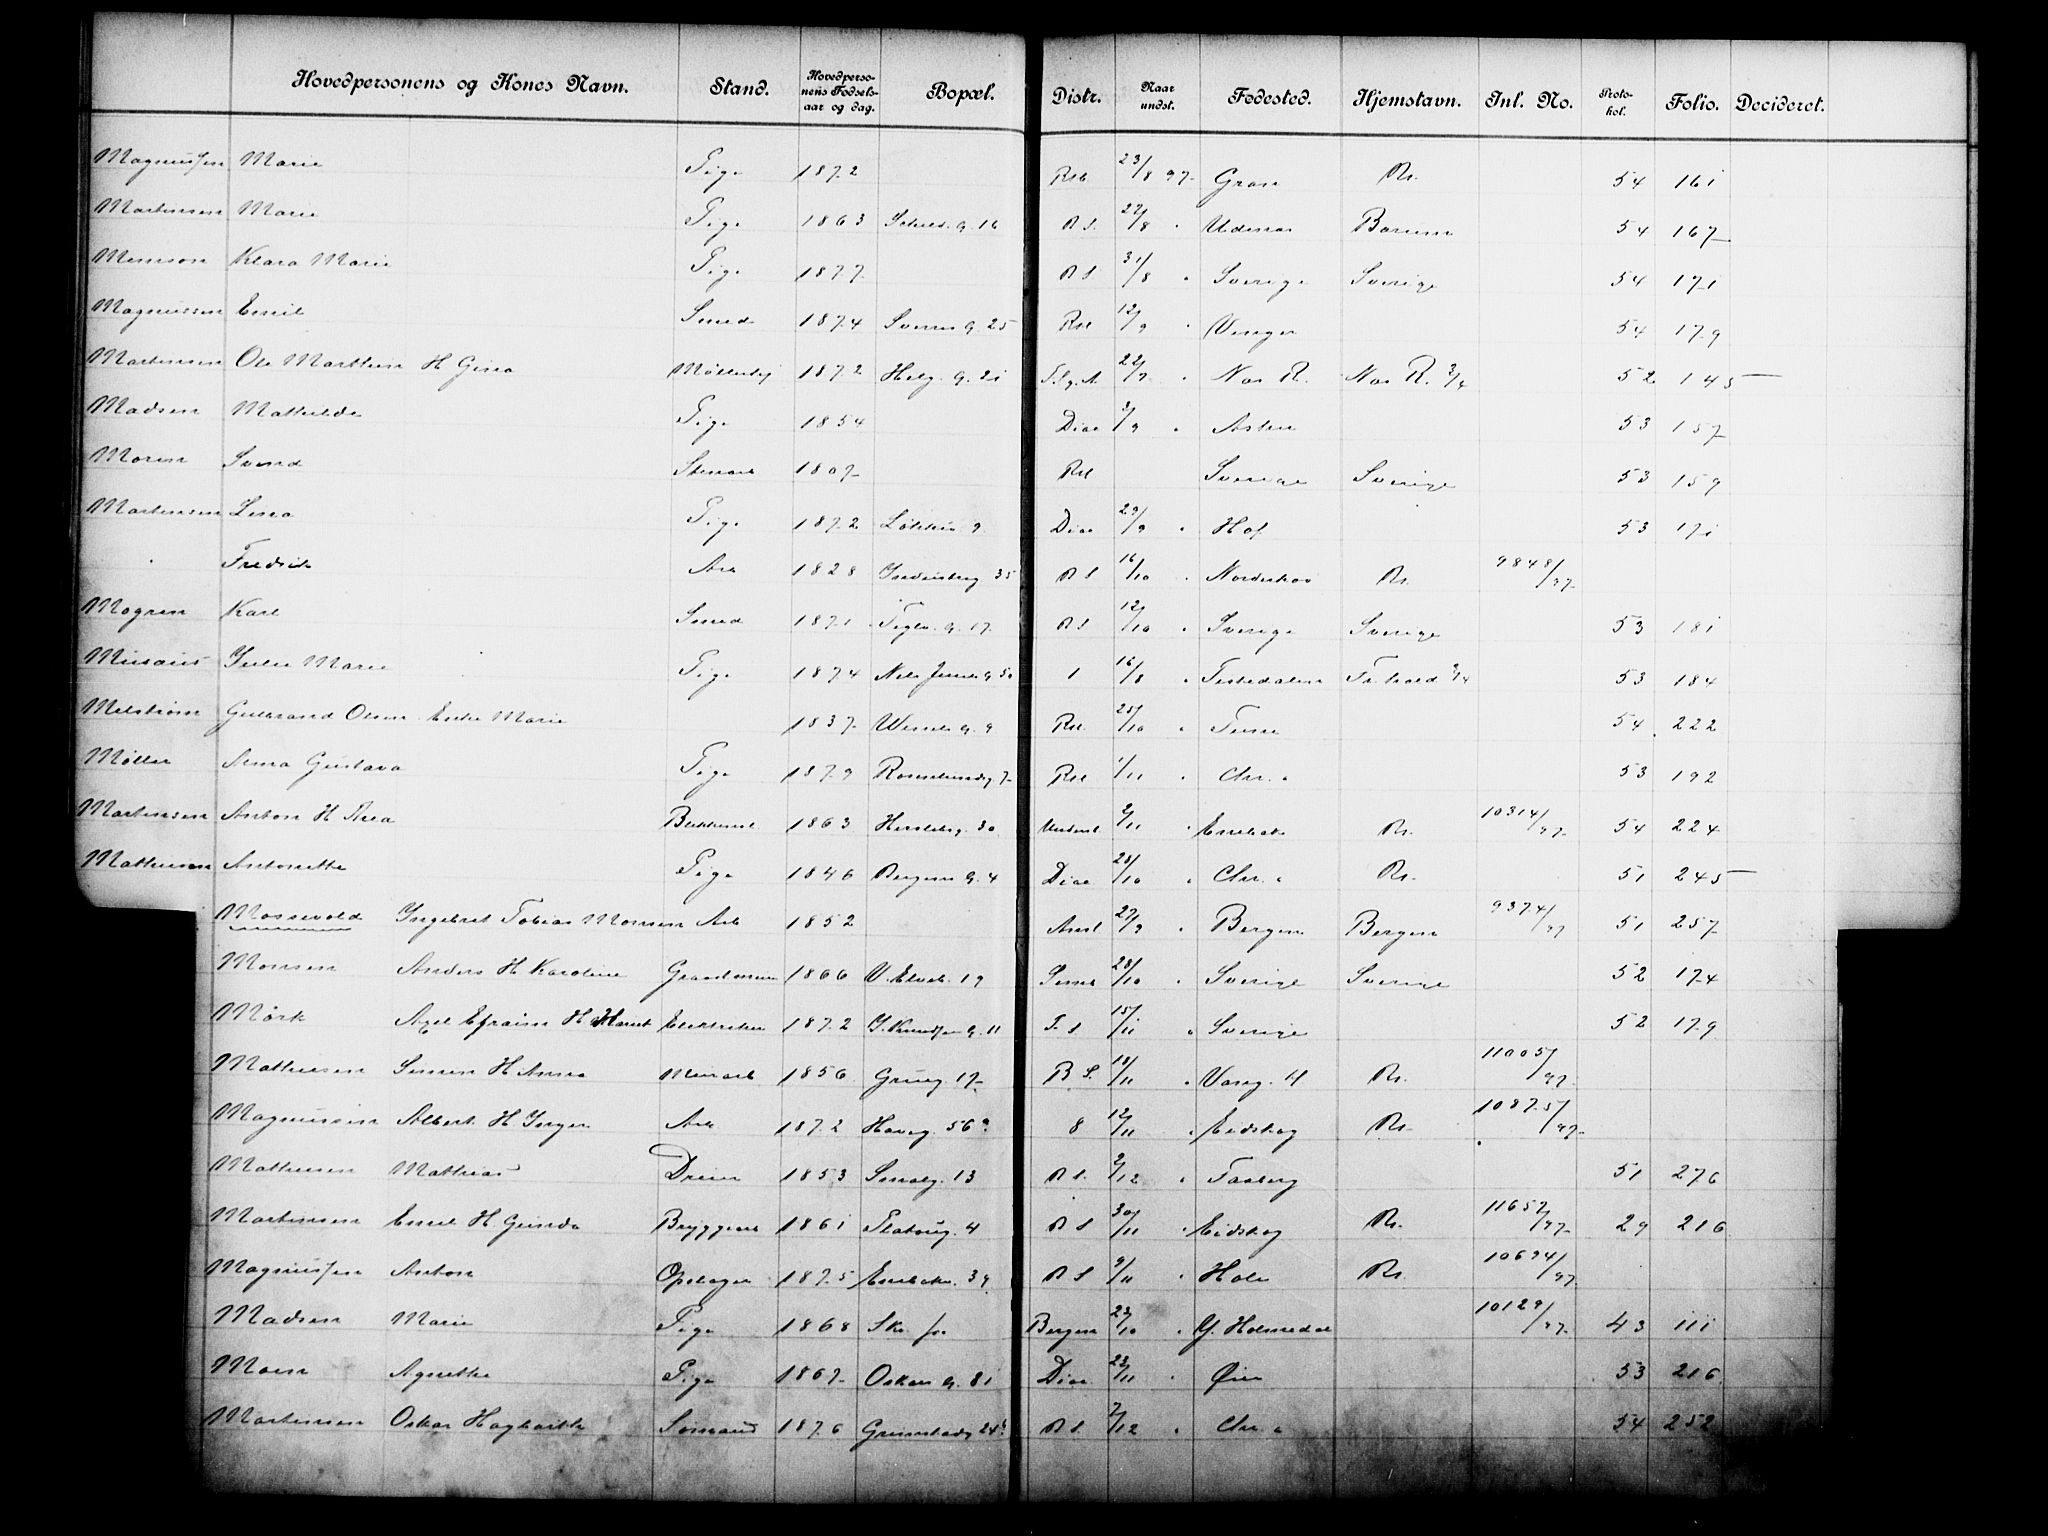 Hovedpersonens og Kones Navn. Stand. Hovedpersonens Fødselsaar og dag. Bopæl. Distr. Naar undst. Fødested. Hjemstavn. Inl. No. Protokol. Folio. Decideret.
Magnussen Marie Pige 1872 Rst 23/8 97 Gran Kr. 54 161
Martinsen Marie Pige 1863 G. 16 R S. 27/8 " Udenes Bærum 54 167
Klara Marie Pige 1877 R S 31/8 " Sverige Sverige 54 171
Magnussen Emil Smed 1874 Sverres G. 25 Rst 12/9 " Vinger 54 179
Martinsen Ole Marthin H Gina 1872 Helg. G. 21 22/7 " Nes R. Nes R. 52 145
Madsen Mathilde Pige 1854 Diac 3/9 " Asker 53 157
Moren Svend Stenarb 1807 Rst Sverige Sverige 53 159
Martinsen Lina Pige 1872 Løkkeg 9 Diac 29/9 " Hof 53 171
" Fredrik Arb 1828 35 R S 16/10 " Kr. 9848/97
Mogren Karl Smed 1871 Teglv. G. 17 R S 12/10 " Sverige Sverige 53 181
Musæus Julie Marie Pige 1874 Nels Juels G 50 1 16/8 " Tistedalen Fr.hald 53 184
Melstrøm Gulbrand Olsen Marie 1837 Wessels G. 9 Rst. 25/10 " 54 222
Møller Alma Gustava Pige 1879 Rosenlundg 7 Rst 1/11 " Chr. a 53 192
Martinsen Anton H Thea 1863 Herslebsg. 30 2/11 " Enebak Kr. 10314/97 54 224
Mathiesen Antonette Pige 1846 Bergens G. 4 Diac 28/10 " Chr. a Kr. 51 245
Mossevold Ingebret Tobias Monsen Arb 1852 Anst 27/9 " Bergen Bergen 9374/97 51 257
Monsen Anders H Karoline 1866 V. Elveb. 19 28/10 " Sverige Sverige 52 174
Mörk Axel Efraim H Elektriker 1872 J. Knudsens G. 11 15/11 " Sverige 52 179
Mathiesen Simen H Anna Murarb 1856 Grueg 17 R S. 18/11 " Vang. H Kr. 11005/97
Magnussen Albert H Inger Arb 1872 Havng. 56 8 12/11 " Eidskog Kr. 10875/97
Mathiesen Mathias Dreier 1853 Smalg. 13 R S. 2/12 " Faaberg 51 276
Martinsen Emil H. Gunda Bryggearb 1861 Platoug. 4 R S 30/11 " Eidskog Kr. 11657/97 29 216
Magnussen Anton Opslager 1875 Enebakv. 39 R S 9/11 " Hole Kr. 10694/97
Madsen Marie Pige 1868 Bergen 23/10 " Y. Holmedal 10129/97 43 111
Moen Agnethe Pige 1867 Oskars G. 81 Diac. 23/11 " Øier 53 216
Martinsen Oskar Hagbarth Sømand 1876 R S. 7/12 " Chr. a 54 252